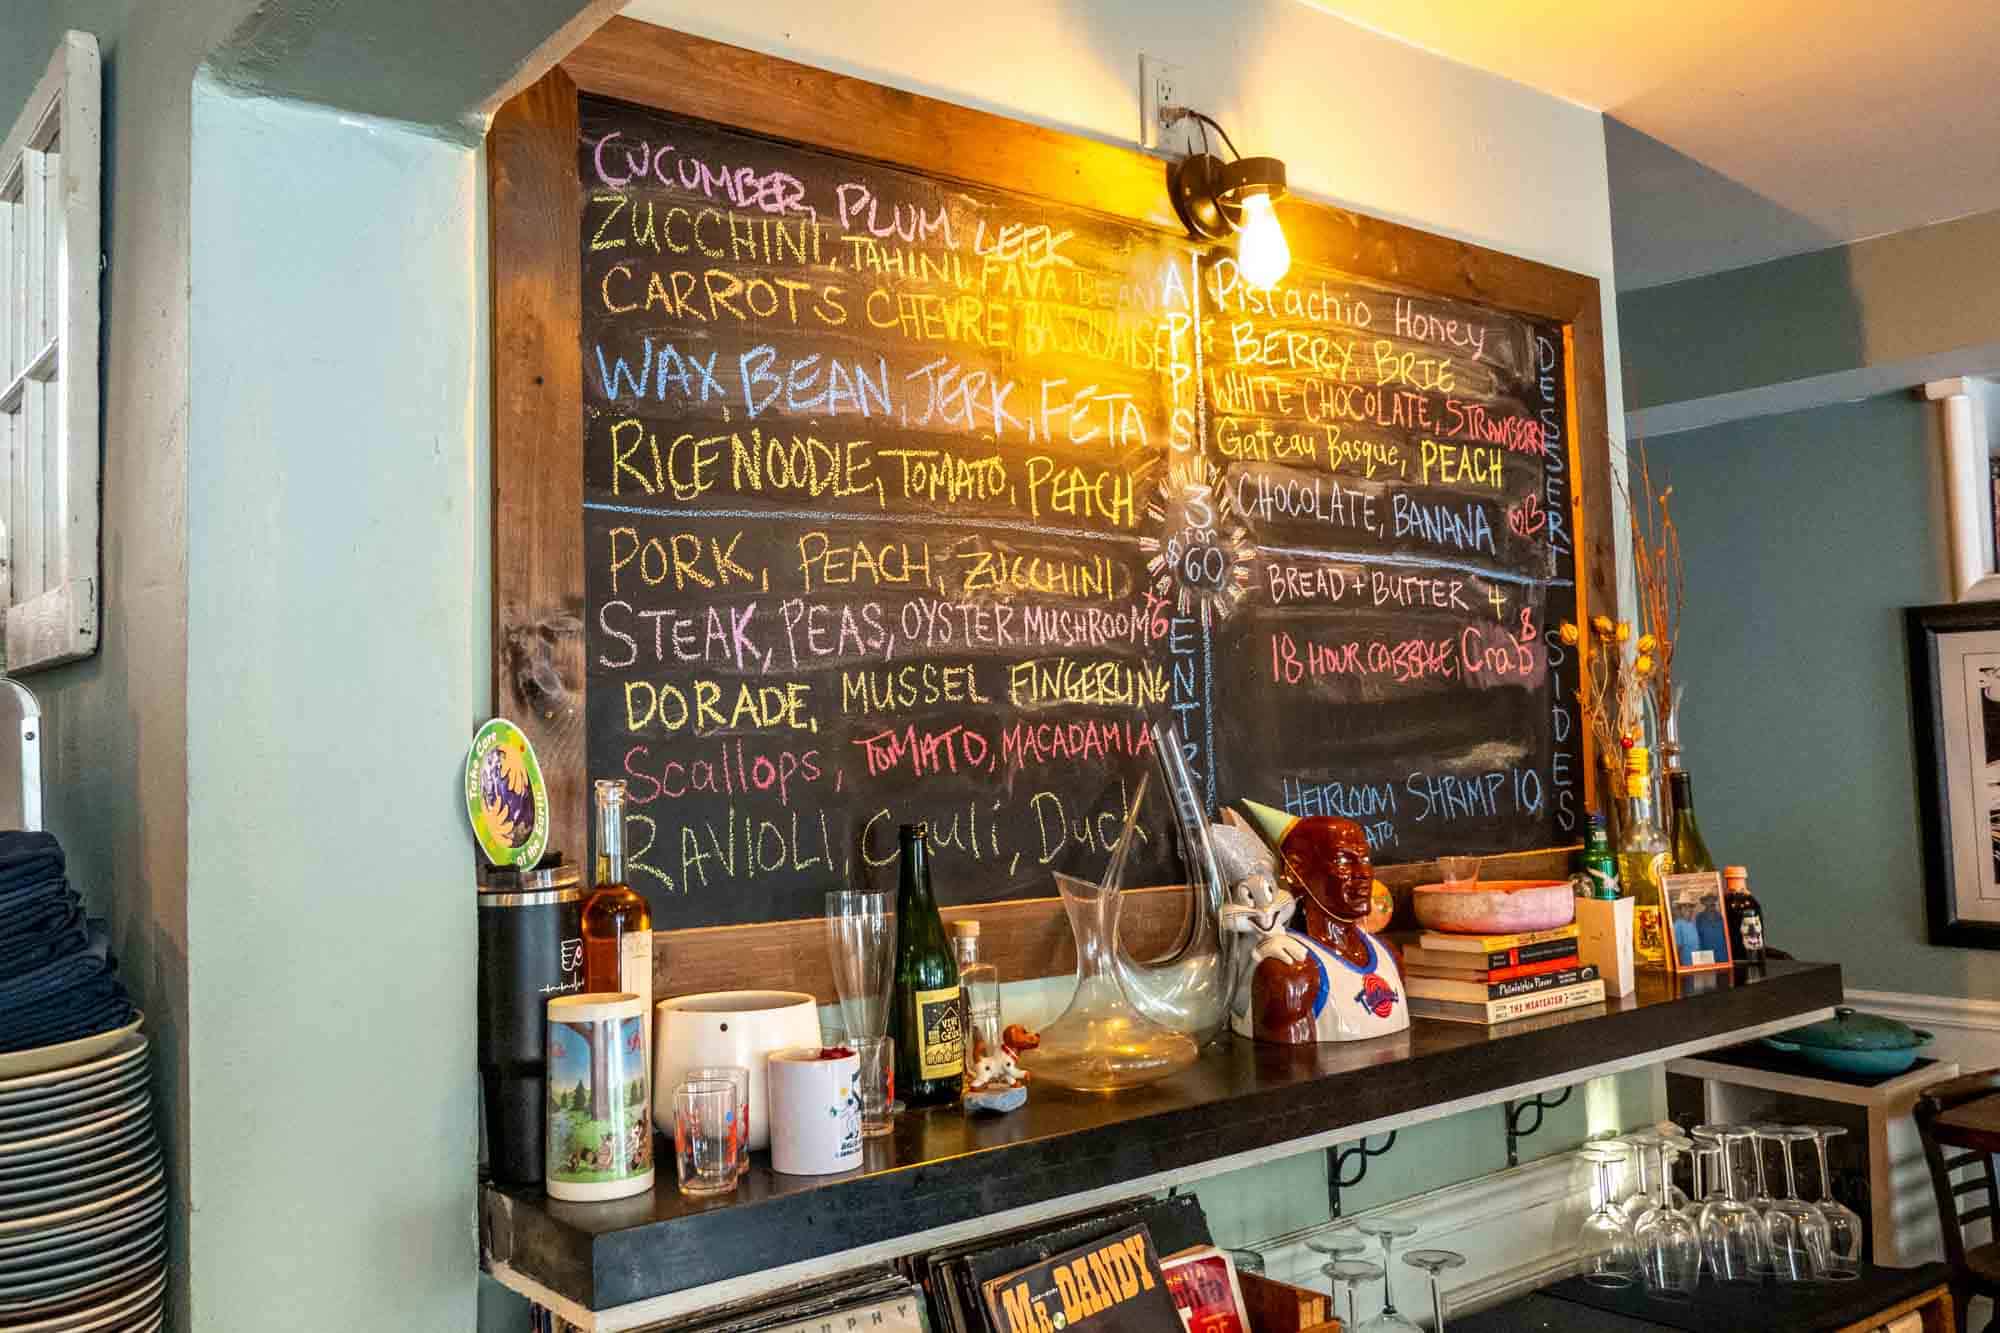 CUCUMBER, PLUM LEEK
ZUCCHINI, TAHINI, FAVA BEAN
CARROTS CHEVRE BASQUAISE
WAX BEAN, JERK, FETA
RICE NOODLE, TOMATO, PEACH
APPS
PORK, PEACH, ZUCCHINI
STEAK, PEAS, OYSTER MUSHROOM +6
DORADE, MUSSEL FINGERLING
Scallops, TOMATO, MACADAMIA
RAVIOLI, Cauli, Duck
ENTREE
3
for
$60
Pistachio Honey
BERRY, BRIE
WHITE CHOCOLATE, STRAWBERRY
Gateau Basque, PEACH
CHOCOLATE, BANANA
DESSERT
BREAD + BUTTER 4
18 HOUR CABBAGE, Crab 8
HEIRLOOM SHRIMP 10
SIDES
Take Care
of the Earth
Philadelphia Flavor
THE MEATEATER
MR. DANDY